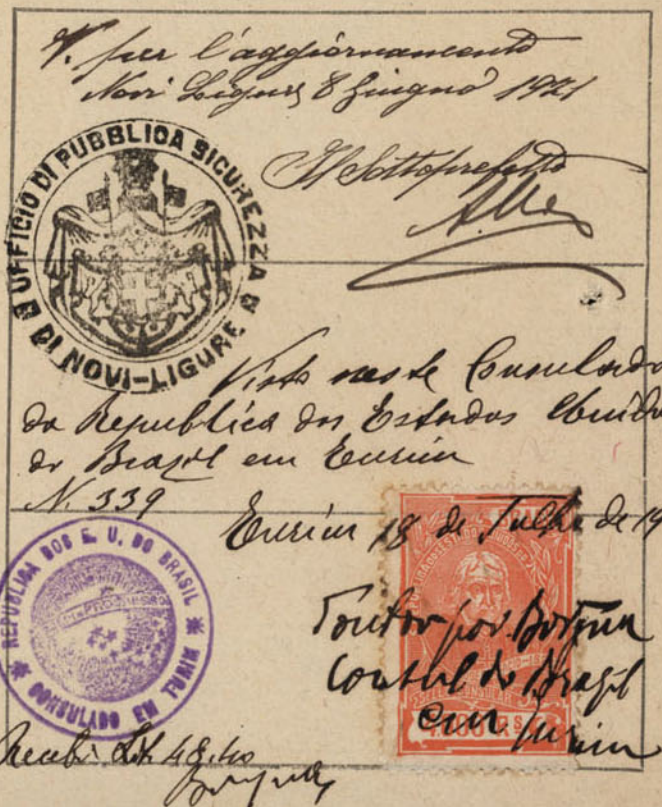 V. per l'aggiornamento
Novi Ligure, 8 Giugno 1921
Il Sottoprefetto
UFFICIO DI PUBBLICA SICUREZZA
DI NOVI-LIGURE
Visto neste Consulado
da Republica dos Estados Unidos
do Brazil em Turim
N. 339
Turim 18 de Julho de 19
REPUBLICA DOS E. U. DO BRASIL
CONSULADO EM TURIM
Consul do Brazil
em Turim
Recebi Lit. 48.40